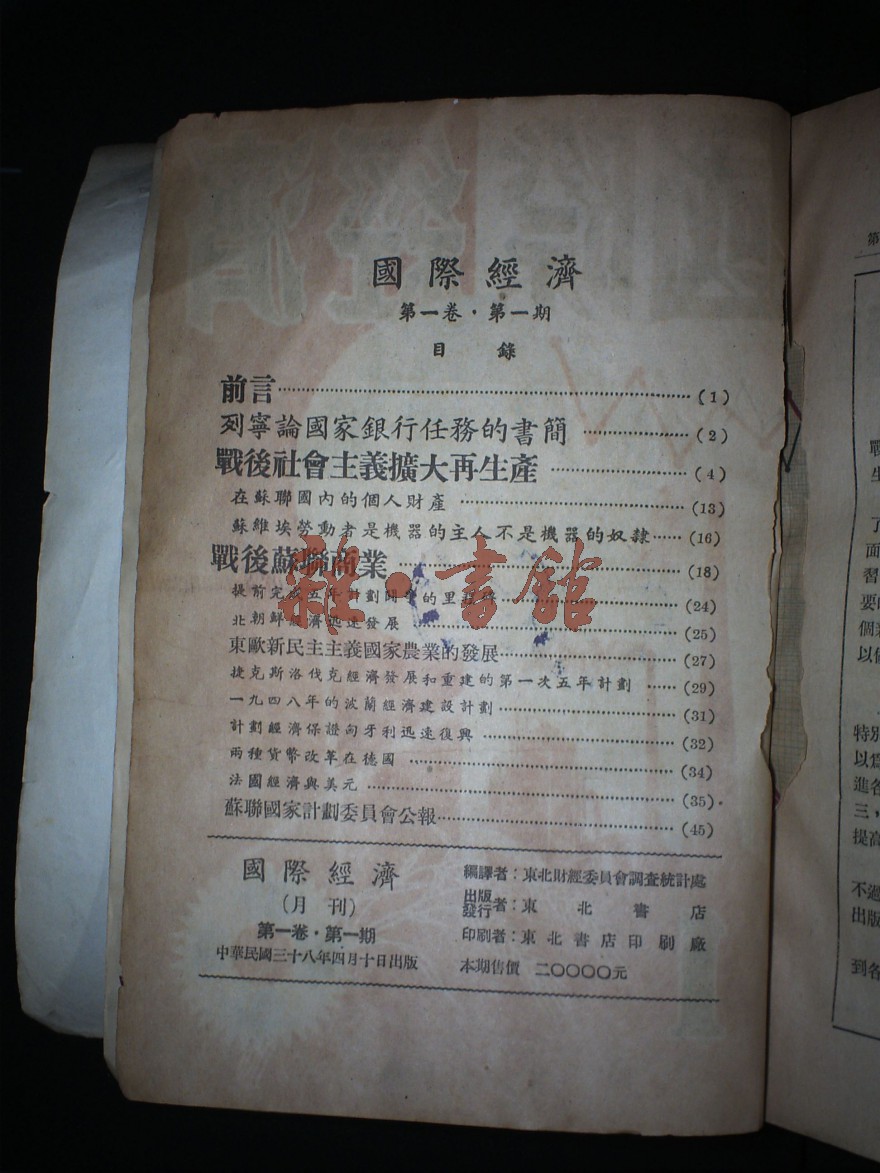 國際經濟
第一卷·第一期
目 錄
前言……(1)
列寧論國家銀行任務的書簡……(2)
戰後社會主義擴大再生產……(4)
在蘇聯國內的個人財產……(13)
蘇維埃勞動者是機器的主人不是機器的奴隸……(16)
戰後蘇聯商業……(18)
提前完成五年計劃鬥爭的里程碑……(24)
北朝鮮經濟迅速發展……(25)
東歐新民主主義國家農業的發展……(27)
捷克斯洛伐克經濟發展和重建的第一次五年計劃……(29)
一九四八年的波蘭經濟建設計劃……(31)
計劃經濟保證匈牙利迅速復興……(32)
兩種貨幣改革在德國……(34)
法國經濟與美元……(35)
蘇聯國家計劃委員會公報……(45)
雜·書館
國際經濟
(月刊)
第一卷·第一期
中華民國三十八年四月十日出版
編譯者：東北財經委員會調查統計處
出版發行者：東北書店
印刷者：東北書店印刷廠
本期售價 二〇〇〇〇元
第
戰
生
了
面
習
要的
個
以
特別
以爲
進各
三，
提高
不
出版
到各